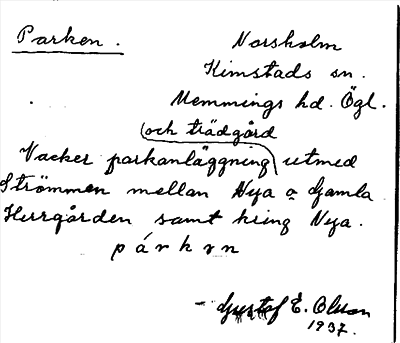 Parken.
Norsholm
Kimstads sn.
Memmings hd. Ögl.
(och trädgård
Vacker parkanläggning) utmed
Strömmen mellan Nya o Gamla
Herrgården samt kring Nya.
párkvn
- Gustaf E. Olson
1937.